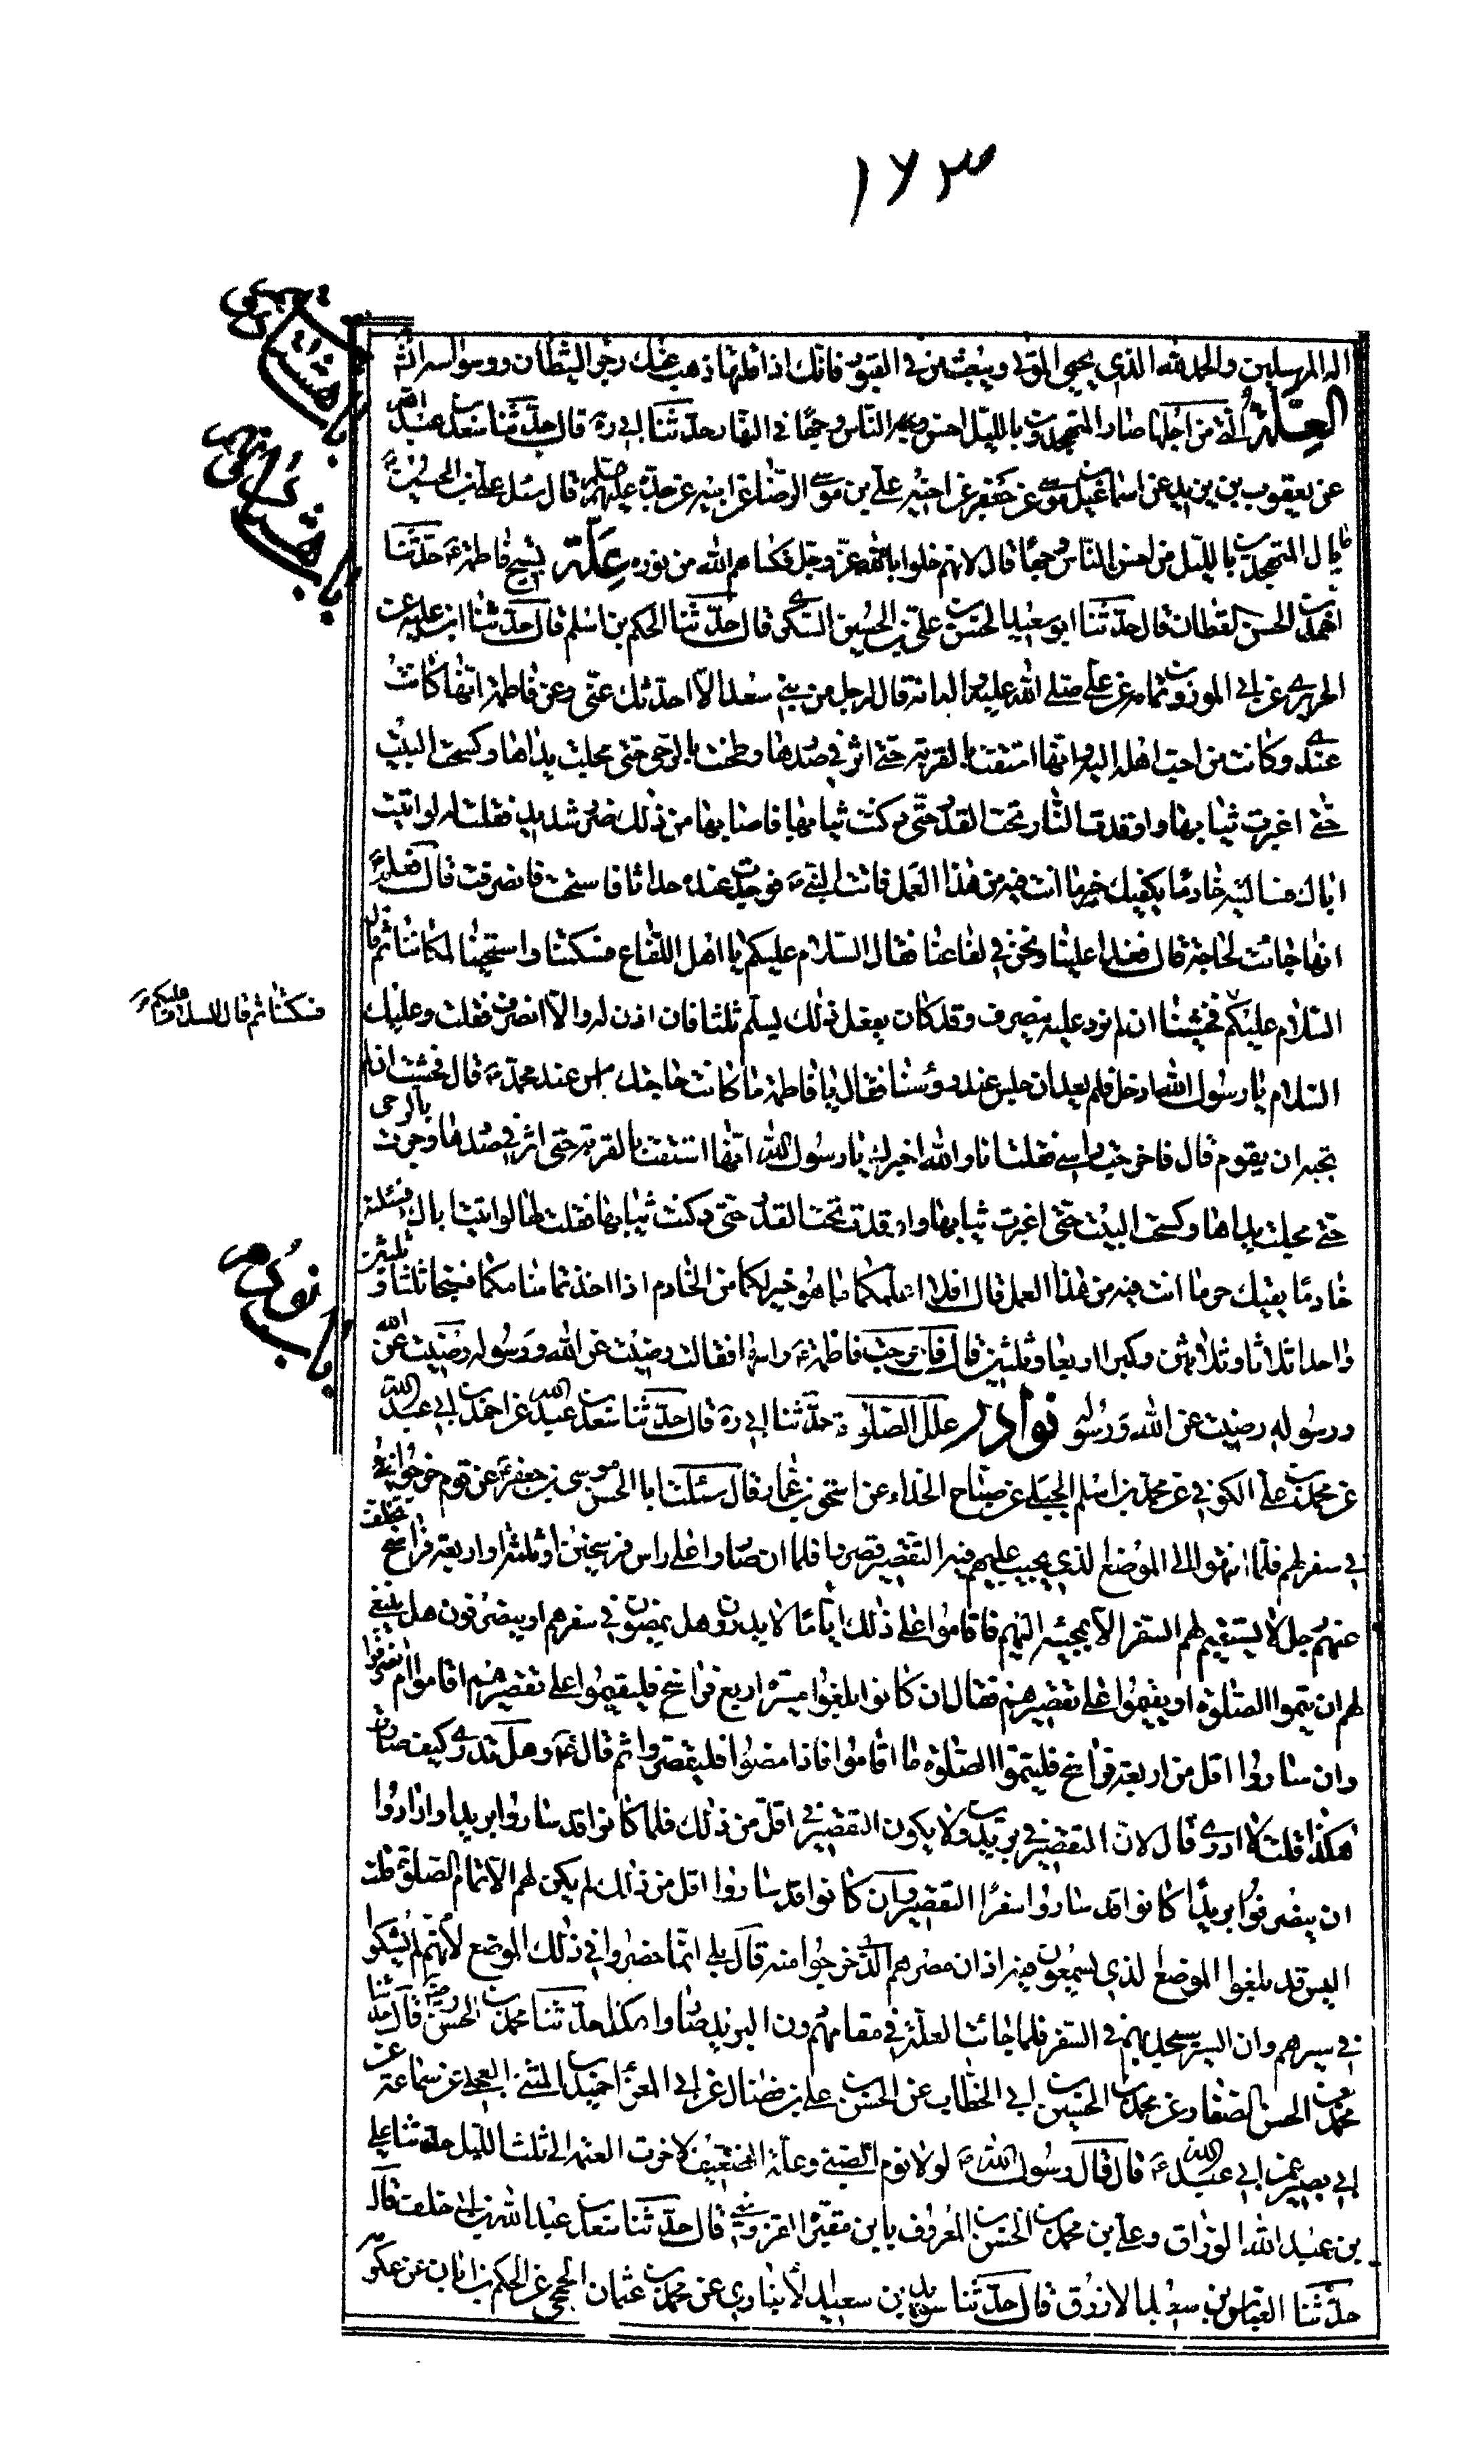 ١٦٣
اله المرسلين والحمد لله الذي يحيي الموتى ويبعث من في القبور فانك اذا قلتها ذهب عنك رجز الشيطان ووسواسه انش
العلة التي من اجلها صار المتهجدون بالليل احسن الناس وجها في النهار حدثنا ابي ره قال حدثنا سعد بن عبد الله
عن يعقوب بن يزيد عن اسماعيل بن موسى بن جعفر عن اخيه علي بن موسى الرضا عن ابيه عن جده عليهم قال سئل علي بن الحسين ع
ما بال المتهجدين بالليل من احسن الناس وجها قال لانهم خلوا بالله عز وجل فكساهم الله من نوره علة تسبيح فاطمة ع حدثنا
احمد بن الحسن القطان قال حدثنا ابو سعيد الحسن بن علي بن الحسين السكري قال حدثنا الحكم بن اسلم قال حدثنا ابن علية عن
الحريري عن ابي الورد بن ثمامه عن علي صلى الله عليه انه قال لرجل من بني سعد الا احدثك عني وعن فاطمة انها كانت
عندي وكانت من احب اهله اليه وانها استقت بالقربة حتى اثر في صدرها وطحنت بالرحى حتى مجلت يداها وكسحت البيت
حتى اغبرت ثيابها واوقدت النار تحت القدر حتى دكنت ثيابها فاصابها من ذلك ضر شديد فقلت له لو اتيت
اباك فسالتيه خادما يكفيك حر ما انت فيه من هذا العمل فاتت النبي ص فوجدت عنده حداثا فاستحت فانصرفت قال فعلم ص
انها جائت لحاجة قال فغدا علينا ونحن في لفاعنا فقال السلام عليكم يا اهل اللفاع فسكتنا واستحيينا لمكاننا ثم قال
السلام عليكم فخشينا ان لم نرد عليه ينصرف وقد كان يفعل ذلك يسلم ثلثا فان اذن له والا انصرف فقلت وعليك
فسكتنا ثم قال السلام عليكم
السلام يا رسول الله ادخل فلم يعد ان جلس عند رؤسنا فقال يا فاطمة ما كانت حاجتك امس عند محمد ص قال فخشيت ان لم
تجبه ان يقوم قال فاخرجت راسي فقلت انا والله اخبرك يا رسول الله انها استقت بالقربة حتى اثر في صدرها وجرت بالرحى
حتى مجلت يداها وكسحت البيت حتى اغبرت ثيابها واوقدت تحت القدر حتى دكنت ثيابها فقلت لها لو اتيت اباك فسئلته
خادما يقيك حر ما انت فيه من هذا العمل قال افلا اعلمكما ما هو خير لكما من الخادم اذا اخذتما منامكما فسبحا ثلثا وثلثين
واحمدا ثلاثا وثلاثين وكبرا اربعا وثلثين قال فاخرجت فاطمة ع راسها فقالت رضيت عن الله ورسوله رضيت عن الله
ورسوله رضيت عن الله ورسوله نوادر علل الصلوة حدثنا ابي ره قال حدثنا سعد بن عبد الله عن احمد بن ابي عبد الله
عن محمد بن علي الكوفي عن محمد بن اسلم الجبلي عن صباح الحذاء عن اسحق بن عمار قال سئلت ابا الحسن موسى بن جعفر ع عن قوم خرجوا
في سفر لهم فلما انتهوا الى الموضع الذي يجب عليهم فيه التقصير قصروا فلما ان صاروا على راس فرسخين او ثلثة او اربعة فراسخ تخلف
عنهم رجل لا يستقيم لهم السفر الا بمجيئه اليهم فاقاموا على ذلك اياما لا يدرون هل يمضون في سفرهم او ينصرفون هل ينبغي
لهم ان يتموا الصلوة او يقيموا على تقصيرهم فقال ان كانوا بلغوا مسيرة اربع فراسخ فليقيموا على تقصيرهم اقاموا ام انصرفوا
وان ساروا اقل من اربعة فراسخ فليتموا الصلوة ما اقاموا فاذا مضوا فليقصروا ثم قال ع وهل تدري كيف صارت
هكذا قلت لا ادري قال لان التقصير في بريدين ولا يكون التقصير في اقل من ذلك فلما كانوا قد ساروا بريدا وارادوا
ان ينصرفوا بريدا كانوا قد ساروا سفر التقصير وان كانوا قد ساروا اقل من ذلك لم يكن لهم الا اتمام الصلوة قلت
اليس قد بلغوا الموضع الذي لا يسمعون فيه اذان مصرهم الذي خرجوا منه قال بلى انما قصروا في ذلك الموضع لانهم لم يشكوا
في سيرهم وان السير سيجد بهم في السفر فلما جائت العلة في مقامهم دون البريد صاروا هكذا حدثنا محمد بن الحسن قال حدثنا
محمد بن الحسن الصفار عن محمد بن الحسين بن ابي الخطاب عن الحسن بن علي بن فضال عن ابي المعزا حميد بن المثنى العجلي عن سماعة عن
ابي بصير عن ابي عبد الله ع قال قال رسول الله ص لولا نوم الصبي وعلة الضعيف لاخرت العتمة الى ثلث الليل حدثنا علي
بن عبد الله الوراق وعلي بن محمد بن الحسن المعروف بابن مقبرة القزويني قال حدثنا سعد بن عبد الله بن ابي خلف قال
حدثنا العباس بن سعيد الازرق قال حدثنا سويد بن سعيد الانباري عن محمد بن عثمان الجمحي عن الحكم بن ابان عن عكرمه